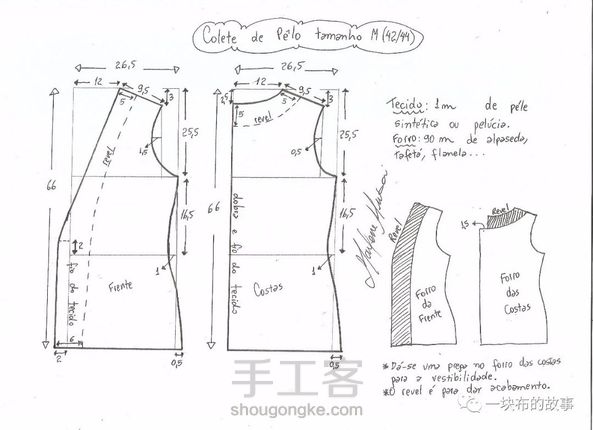 Colete de Pêlo tamanho M (42/44)
26,5
12
9,5
3
5
revel
1,5
25,5
66
16,5
2
1
fio do tecido
Frente
6
2
0,5
26,5
12
9,5
3
2,5
5
5
revel
0,5
25,5
66
16,5
dobra e fio do tecido
1
Costas
0,5
Tecido: 1m de péle
sintética ou pelúcia.
Forro: 90 m de alpaseda,
tafetá, flanela...
Marlene Mukai
Revel
Forro
da
Frente
Revel
1,5
Forro
das
Costas
* Dá-se uma prega no forro das costas
para a vestibilidade.
* O revel é para dar acabamento.
手工客
shougongke.com
一块布的故事